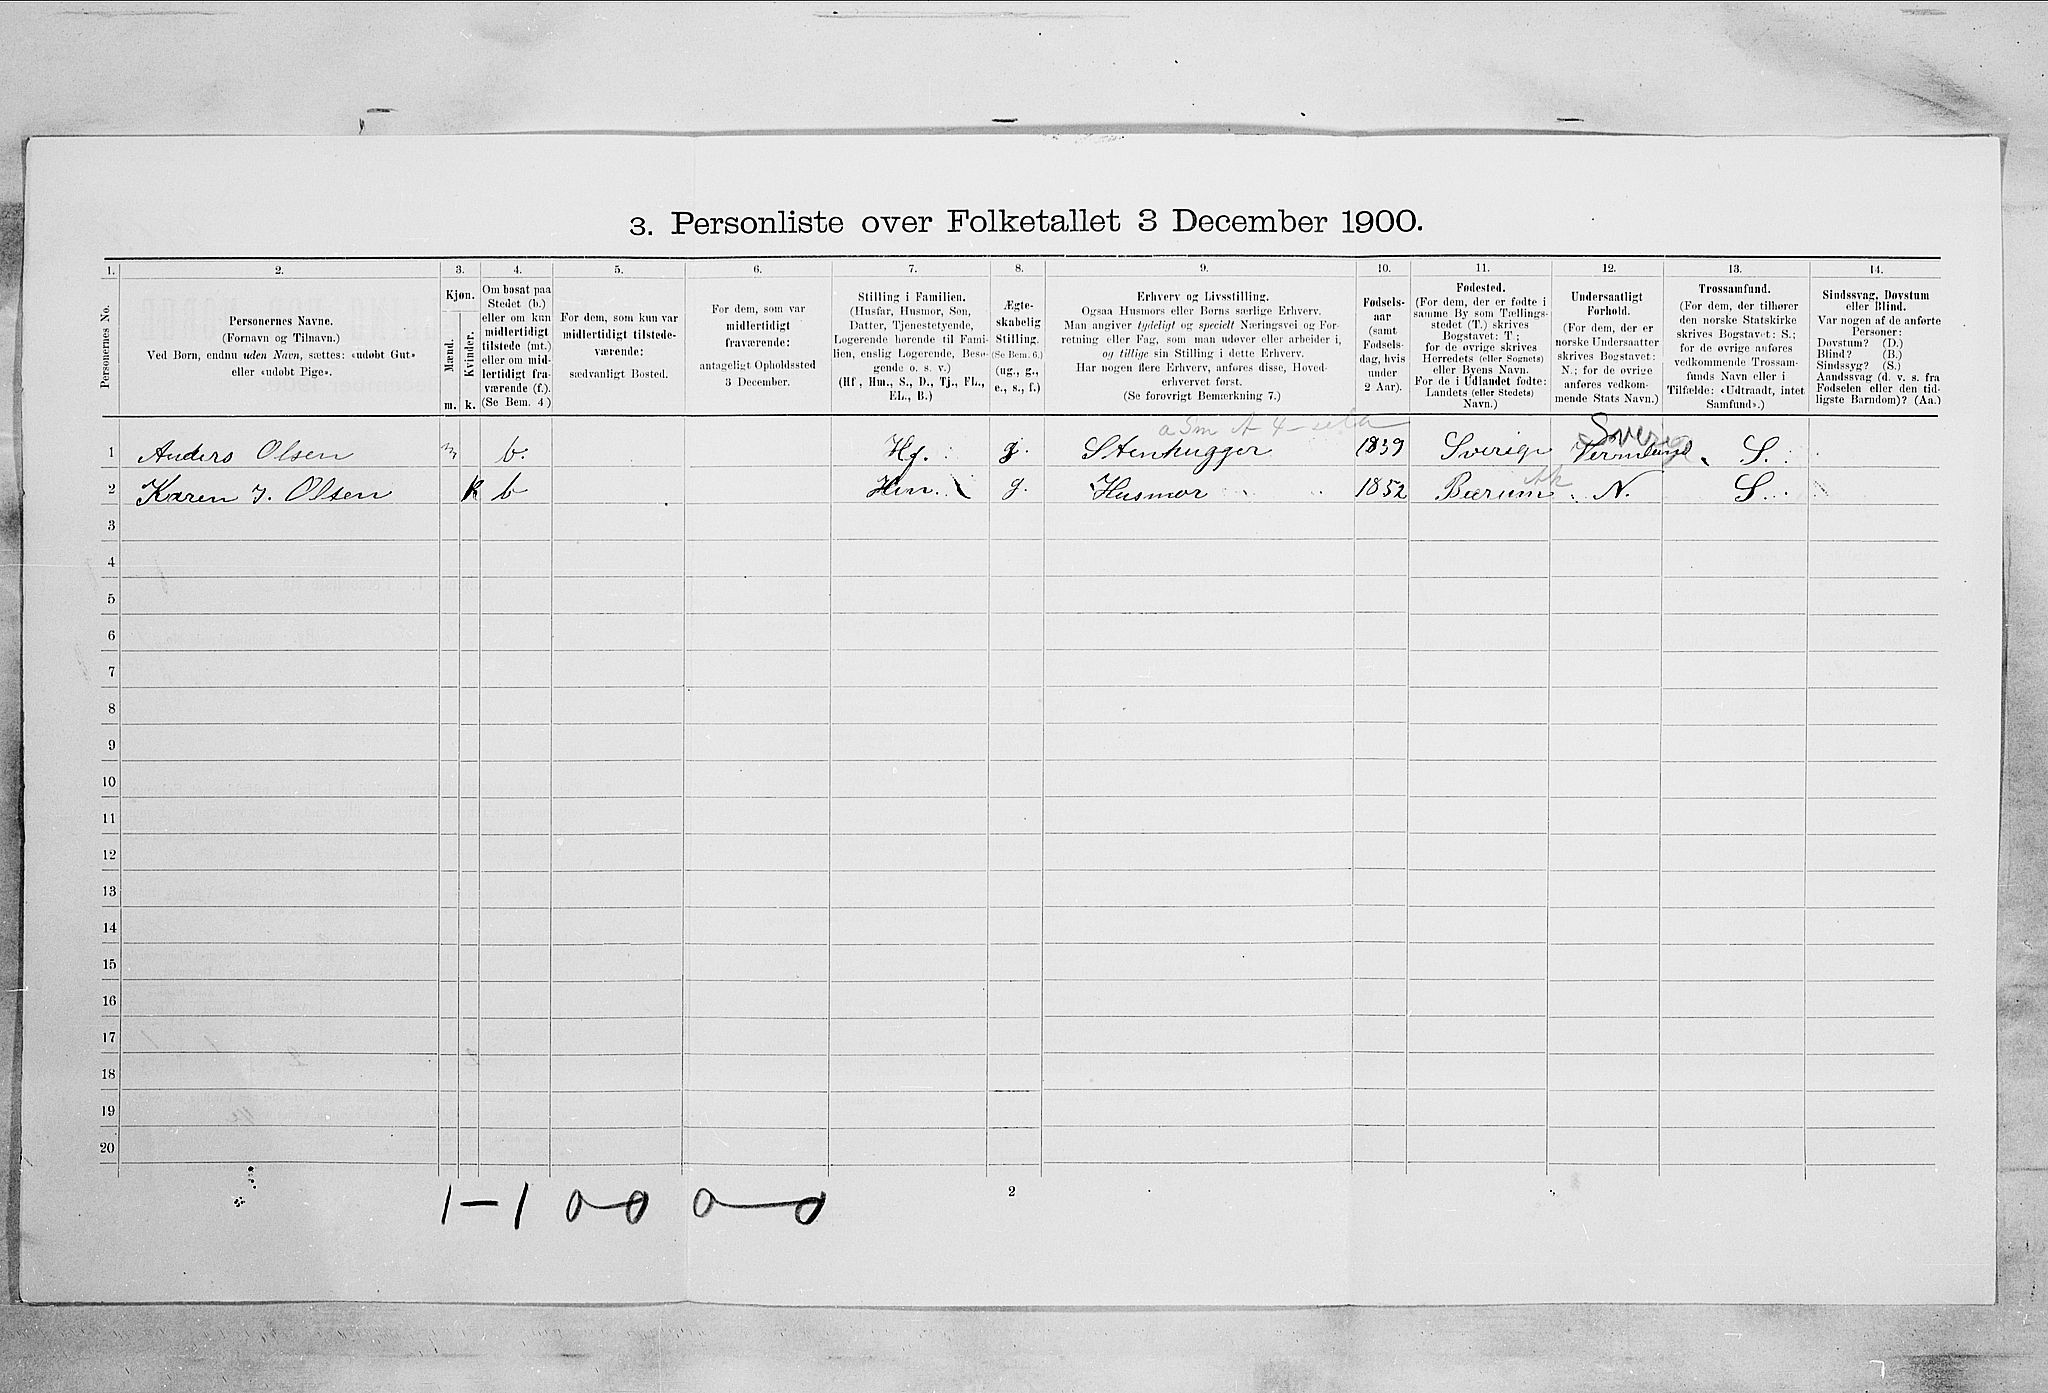 3. Personliste over Folketallet 3 December 1900.
1. 2. 3. 4. 5. 6. 7. 8. 9. 10. 11. 12. 13. 14.
Personernes No.
Personernes Navne.
(Fornavn og Tilnavn.)
Ved Børn, endnu uden Navn, sættes: «udøbt Gut»
eller «udøbt Pige».
Kjøn.
Mænd.
Kvinder.
m. k.
Om bosat paa
Stedet (b.)
eller om kun
midlertidigt
tilstede (mt.)
eller om mid-
lertidigt fra-
værende (f.).
(Se Bem. 4)
For dem, som kun var
midlertidigt tilstede-
værende:
sædvanligt Bosted.
For dem, som var
midlertidigt
fraværende:
antageligt Opholdssted
3 December.
Stilling i Familien.
(Husfar, Husmor, Søn,
Datter, Tjenestetyende,
Logerende hørende til Fami-
lien, enslig Logerende, Besø-
gende o. s. v.)
(Hf., Hm., S., D., Tj., FL.,
EL., B.)
Ægte-
skabelig
Stilling.
(Se Bem. 6.)
(ug., g.,
e., s., f.)
Erhverv og Livsstilling.
Ogsaa Husmors eller Børns særlige Erhverv.
Man angiver tydeligt og specielt Næringsvei og For-
retning eller Fag, som man udøver eller arbeider i,
og tillige sin Stilling i dette Erhverv.
Har nogen flere Erhverv, anføres disse, Hoved-
erhvervet først.
(Se forøvrigt Bemærkning 7.)
Fødsels-
aar
(samt
Fødsels-
dag, hvis
under
2 Aar).
Fødested.
(For dem, der er fødte i
samme By som Tællings-
stedet (T.) skrives
Bogstavet: T;
for de øvrige skrives
Herredets (eller Sognets)
eller Byens Navn.
For de i Udlandet fødte:
Landets (eller Stedets)
Navn.)
Undersaatligt
Forhold.
(For dem, der er
norske Undersaatter
skrives Bogstavet:
N.; for de øvrige
anføres vedkom-
mende Stats Navn.)
Trossamfund.
(For dem, der tilhører
den norske Statskirke
skrives Bogstavet: S.;
for de øvrige anføres
vedkommende Trossam-
funds Navn eller i
Tilfælde: «Udtraadt, intet
Samfund».)
Sindssvag, Døvstum
eller Blind.
Var nogen af de anførte
Personer:
Døvstum? (D.)
Blind? (B.)
Sindssyg? (S.)
Aandssvag (d. v. s. fra
Fødselen eller den tid-
ligste Barndom)? (Aa.)
Sverige
1 Anders Olsen m b. Hf. g. Stenhugger 1839 Sverige Vermland S.
2 Karen J. Olsen k b Hm. g. Husmor 1852 Bærum Ak N. S.
3
4
5
6
7
8
9
10
11
12
13
14
15
16
17
18
19
20
1-1 0 0 0 0
2